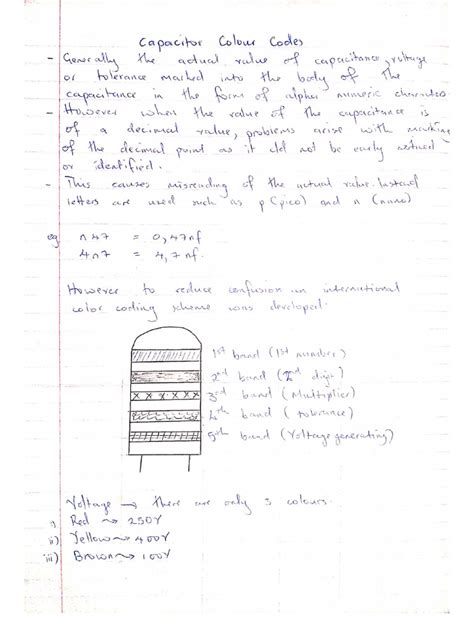 Capacitor Colour Codes
- Generally the actual value of capacitance, voltage
or tolerance marked into the body of the
capacitance in the form of alpha numeric character
- However when the value of the capacitance is
of a decimal value, problems arise with marking
of the decimal point as it did not be early noticed
or identified.
- This causes misreading of the actual value. Instead
letters are used such as p (pico) and n (nano)
eg n47 = 0,47nf
4n7 = 4,7nf.
However to reduce confusion an international
color coding scheme was developed.
1st band (1st number)
2nd band (2nd digit)
3rd band (Multiplier)
4th band (tolerance)
5th band (Voltage generating)
Voltage → there are only 3 colours.
i) Red ~> 250V
ii) Yellow ~> 400V
iii) Brown ~> 100V